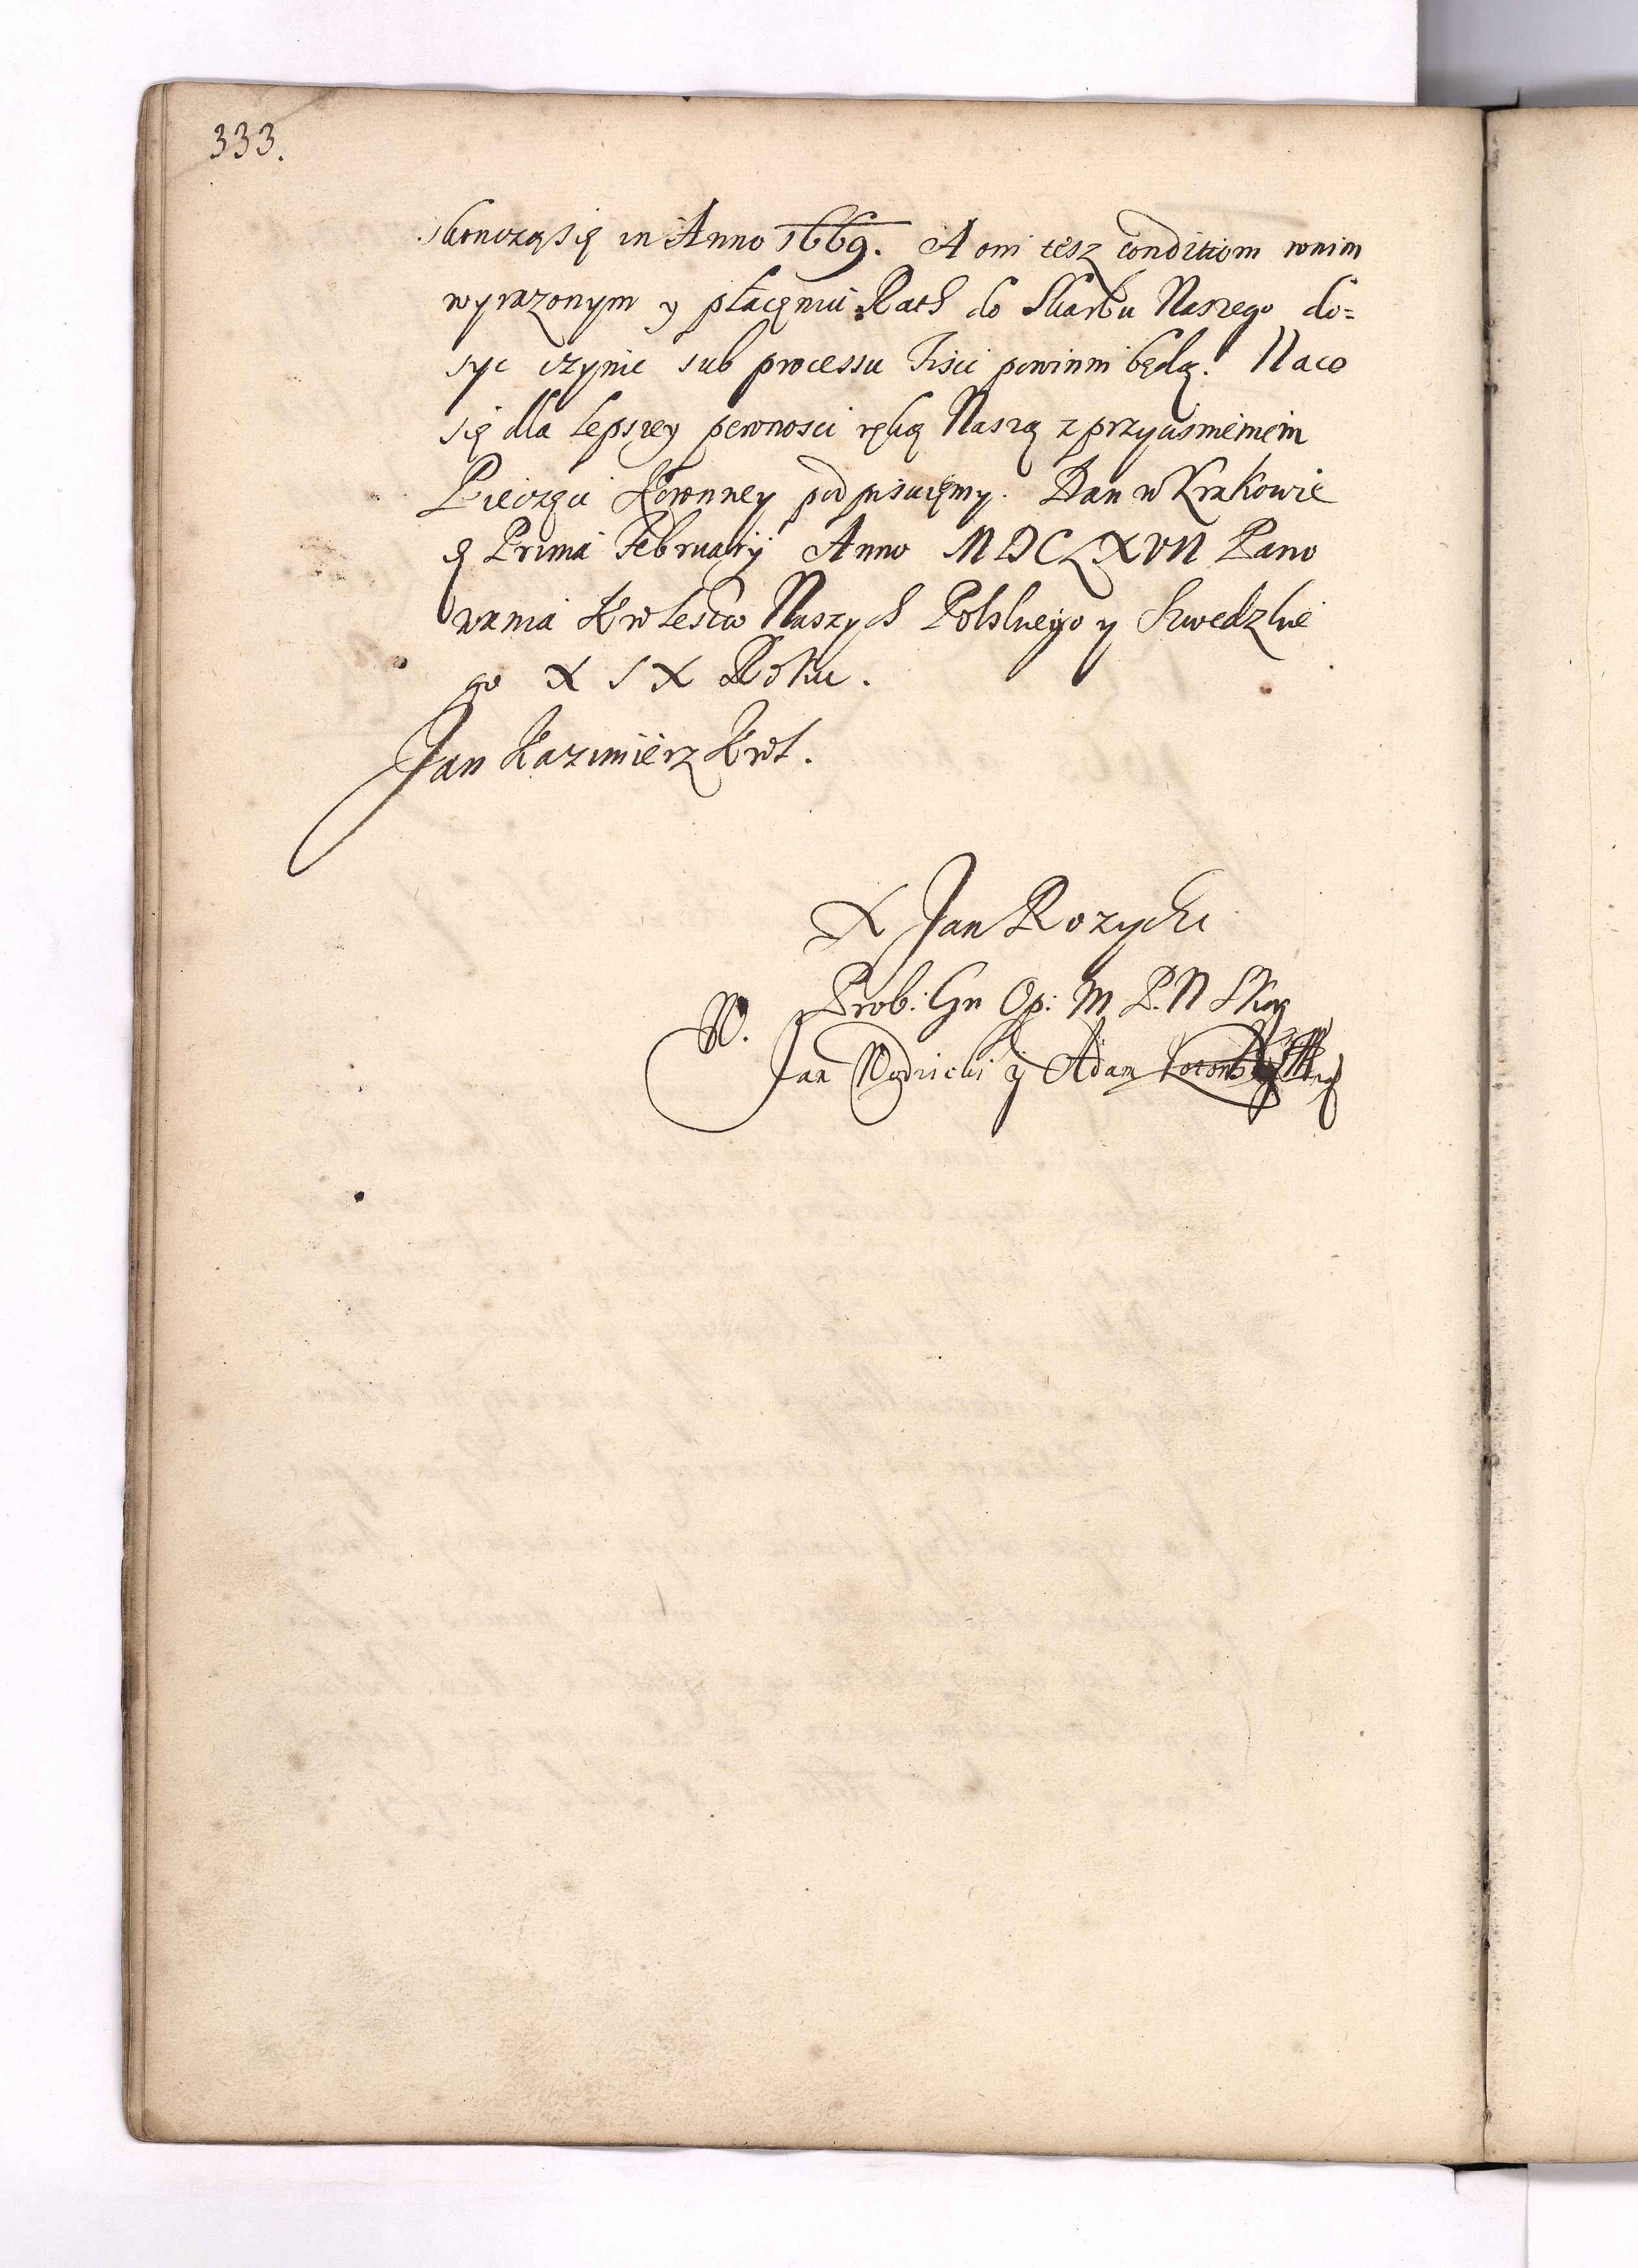 333.
skonczą się in Anno 1669. A oni tesz conditiom wnim
wyrazonym y płacęniu Rath do Skarbu Naszego do=
syc czynic sub processu Fisci powinni będą. Naco
się dla lepszey pewnosci ręką Naszą z przycisnieniem
Pieczęci Koronney podpisuięmy. Dan w Krakowie
Prima February Anno MDCLXVII Pano
wania Krolestw Naszych Polskiego y Szwedzkie
go XIX Roku.
Jan Kazimierz Krol.
X Jan Rozycki
Prob: Gn Op: M P. N Skar
Jan y Adam